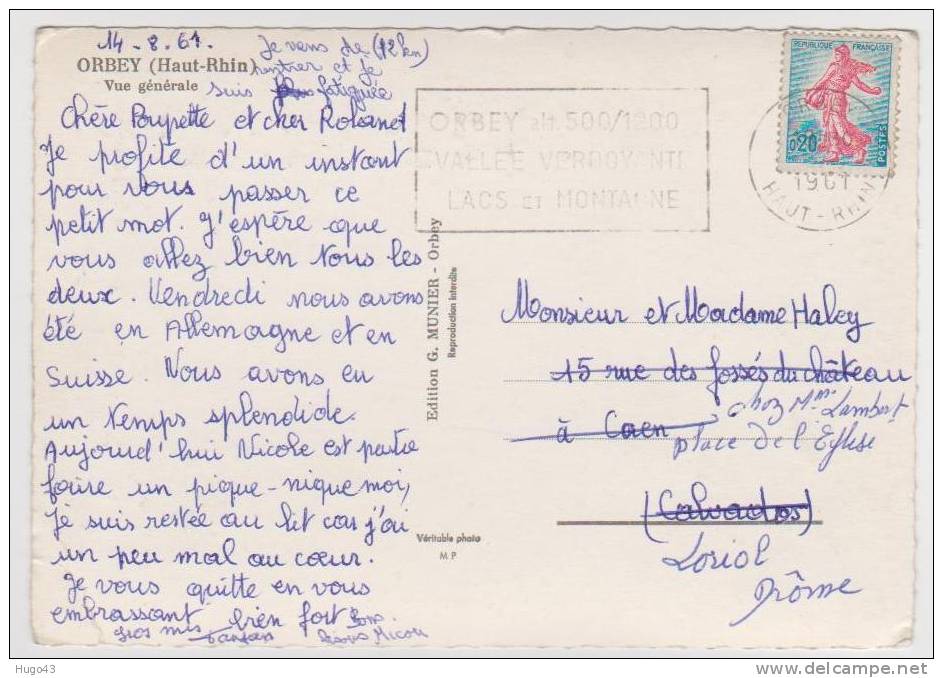 14-8-61.
Je viens de (12 km)
rentrer et je
suis fatiguée
ORBEY (Haut-Rhin)
Vue générale
Chère Poupette et cher Roland
Je profite d'un instant
pour vous passer ce
petit mot. J'espère que
vous allez bien tous les
deux. Vendredi nous avons
été en Allemagne et en
Suisse. Nous avons eu
un temps splendide.
Aujourd'hui Nicole est partie
faire un pique-nique moi,
je suis restée au lit car j'ai
un peu mal au cœur.
Je vous quitte en vous
embrassant bien fort Bons
gros mis
Edition G. MUNIER - Orbey
Reproduction interdite
Véritable photo
M P
ORBEY alt. 500/1200
VALLEE VERDOYANTE
LACS ET MONTAGNE
REPUBLIQUE FRANÇAISE
0,20
POSTES
1961
HAUT-RHIN
Monsieur et Madame Haley
15 rue des fossés du château
à Caen
chez Mme Lambert
place de l'Eglise
(Calvados)
Loriol
Drôme
Hugo43
©delcampe.net